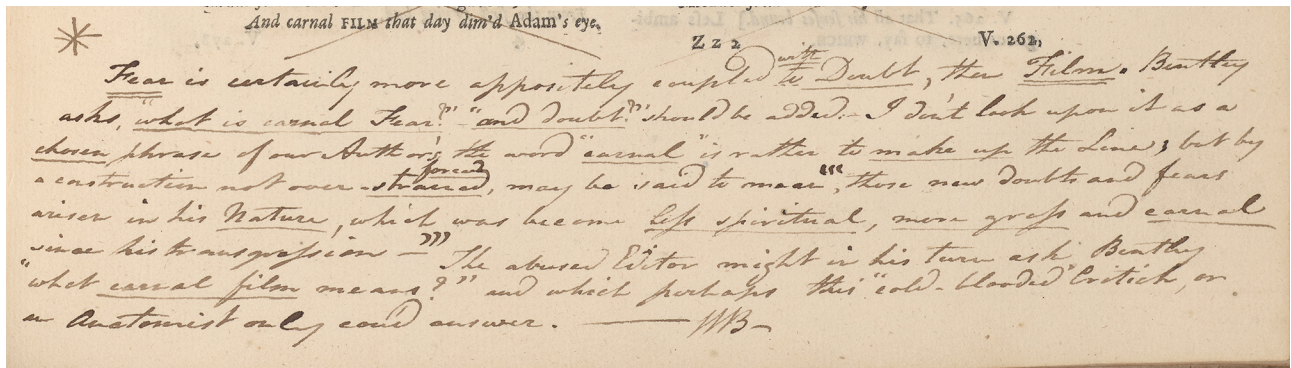 And carnal FILM that day dim'd Adam's eye.
Z z 2 V. 262,
Fear is certainly more appositely coupled with to Doubt, then Film. Bentley
asks, "what is carnal Fear?" "and doubt?" should be added. – I don't look upon it as a
chosen phrase of our Author's; the word "carnal" is rather to make up the Line; but by
a construction not over-strained, forced may be said to mean "“those new doubts and fears
arisen in his Nature, which was become less spiritual, more gross and carnal
since his transgression –"” The abused Editor might in his turn ask Bentley
"what carnal film means?" and which perhaps this "cold-blooded" Critick, or
an Anatomist only coud answer. ——— WB–